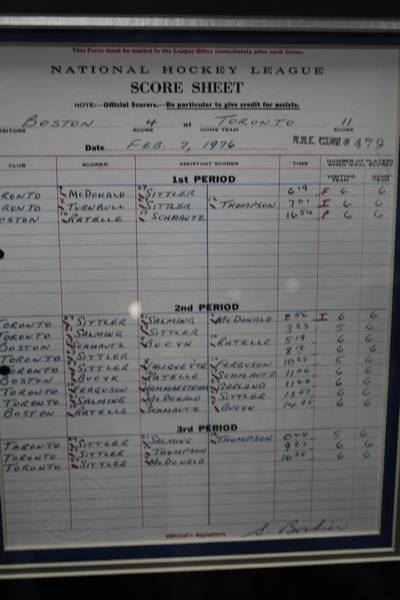 This Form must be mailed to the League Office immediately after each Game.
NATIONAL HOCKEY LEAGUE
SCORE SHEET
NOTE:—Official Scorers.—Be particular to give credit for assists.
BOSTON 4 at TORONTO 11
VISITORS SCORE HOME TEAM SCORE
Date FEB. 7, 1976 479
CLUB SCORER ASSISTANT SCORER TIME NUMBER OF PLAYERS
VISITING TEAM HOME TEAM
1st PERIOD
RONTO McDONALD SITTLER 6 19 F 6 6
RONTO TURNBULL SITTLER THOMPSON 7 01 I 6 6
OSTON RATELLE SCHMAUTZ 16 54 P 6 6
2nd PERIOD
TORONTO SITTLER SALMING McDONALD 2 56 I 6 6
TORONTO SALMING SITTLER 3 33 5 6
BOSTON SCHMAUTZ BUCYK RATELLE 5 19 6 6
TORONTO SITTLER 8 12 6 6
TORONTO SITTLER VALIQUETTE FERGUSON 10 27 5 6
BOSTON BUCYK RATELLE SCHMAUTZ 11 06 6 6
TORONTO FERGUSON HAMMARSTROM GARLAND 11 40 6 6
TORONTO SALMING McDONALD SITTLER 13 57 6 6
BOSTON RATELLE SCHMAUTZ BUCYK 14 35 6 6
3rd PERIOD
TORONTO SITTLER SALMING THOMPSON 0 44 5 6
TORONTO SITTLER THOMPSON 9 27 6 6
TORONTO SITTLER McDONALD 16 35 6 6
Official's Signature